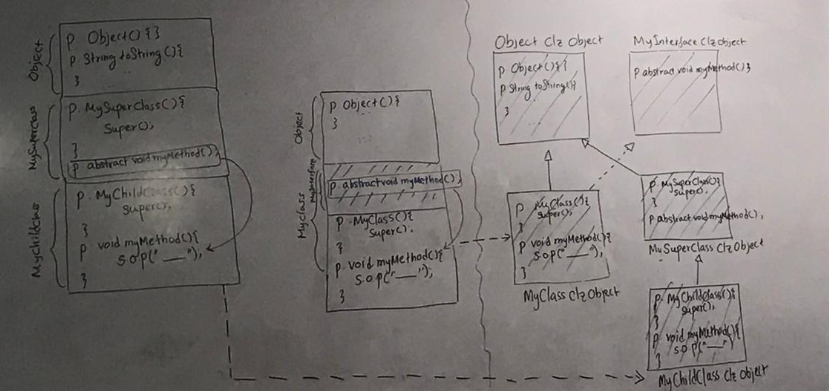 Object
p Object(){}
p String toString(){
...
}
MySuperClass
p MySuperClass(){
Super();
}
p abstract void myMethod();
MyChildClass
p MyChildClass(){
super();
}
p void myMethod(){
s.o.p("___");
}
Object
p Object(){
}
MyClass
MyInterface
p abstract void myMethod();
p MyClass(){
Super();
}
p void myMethod(){
s.o.p("___");
}
Object Clz Object
p Object(){
p String toString(){
}
MyInterface Clz Object
p abstract void myMethod();
p MyClass(){
super();
}
p void myMethod(){
s.o.p("___");
}
MyClass Clz Object
p MySuperClass(){
super();
}
p abstract void myMethod();
MySuperClass Clz Object
p MyChildClass(){
super();
}
p void myMethod(){
s.o.p("___");
}
MyChildClass Clz Object